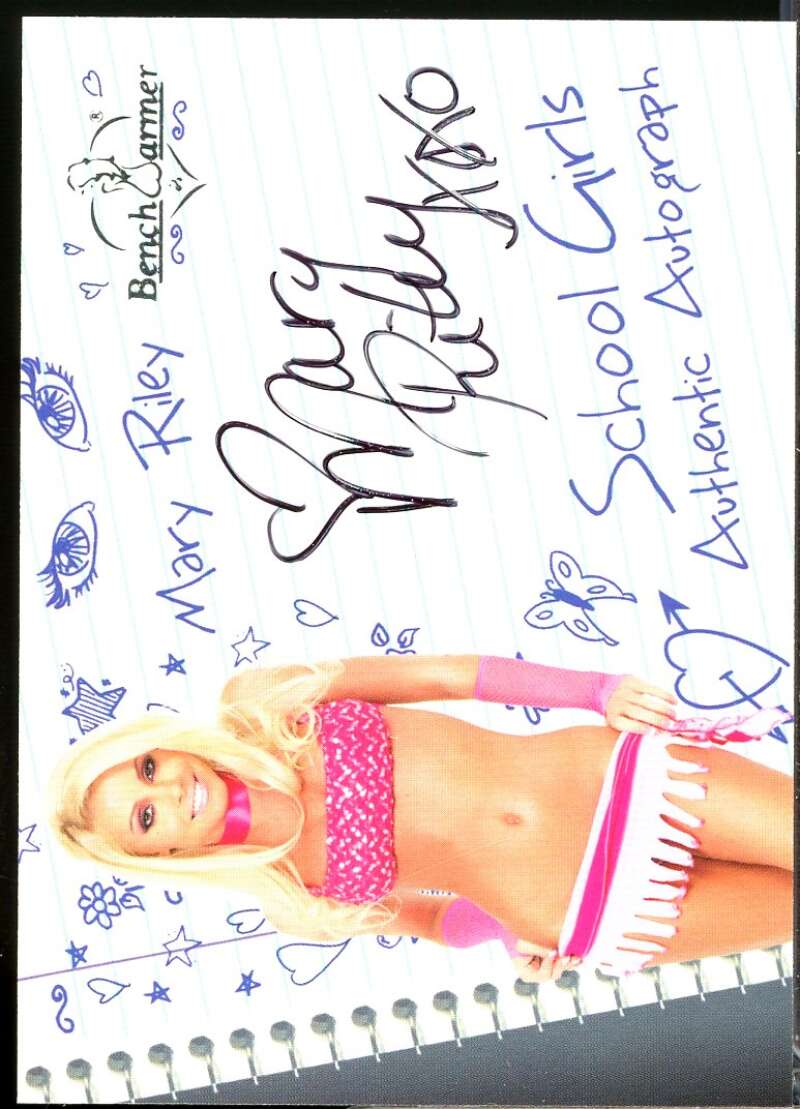 BenchWarmer
®
Mary Riley
Mary
Riley xoxo
School Girls
Authentic Autograph